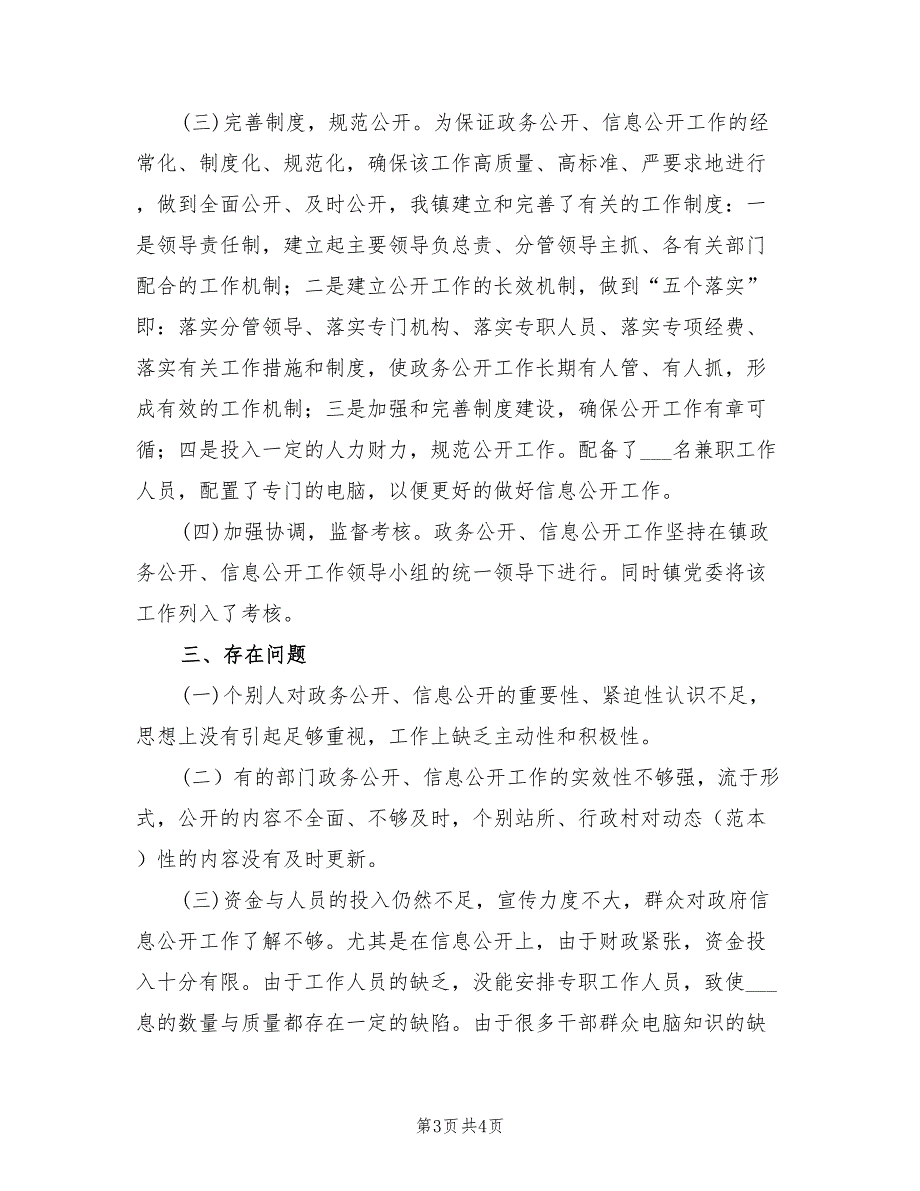 (三)完善制度，规范公开。为保证政务公开、信息公开工作的经
常化、制度化、规范化，确保该工作高质量、高标准、严要求地进行
，做到全面公开、及时公开，我镇建立和完善了有关的工作制度：一
是领导责任制，建立起主要领导负总责、分管领导主抓、各有关部门
配合的工作机制；二是建立公开工作的长效机制，做到“五个落实”
即：落实分管领导、落实专门机构、落实专职人员、落实专项经费、
落实有关工作措施和制度，使政务公开工作长期有人管、有人抓，形
成有效的工作机制；三是加强和完善制度建设，确保公开工作有章可
循；四是投入一定的人力财力，规范公开工作。配备了___名兼职工作
人员，配置了专门的电脑，以便更好的做好信息公开工作。
(四)加强协调，监督考核。政务公开、信息公开工作坚持在镇政
务公开、信息公开工作领导小组的统一领导下进行。同时镇党委将该
工作列入了考核。
三、存在问题
(一)个别人对政务公开、信息公开的重要性、紧迫性认识不足，
思想上没有引起足够重视，工作上缺乏主动性和积极性。
(二）有的部门政务公开、信息公开工作的实效性不够强，流于形
式，公开的内容不全面、不够及时，个别站所、行政村对动态（范本
）性的内容没有及时更新。
(三)资金与人员的投入仍然不足，宣传力度不大，群众对政府信
息公开工作了解不够。尤其是在信息公开上，由于财政紧张，资金投
入十分有限。由于工作人员的缺乏，没能安排专职工作人员，致使___
息的数量与质量都存在一定的缺陷。由于很多干部群众电脑知识的缺
第3页共4页